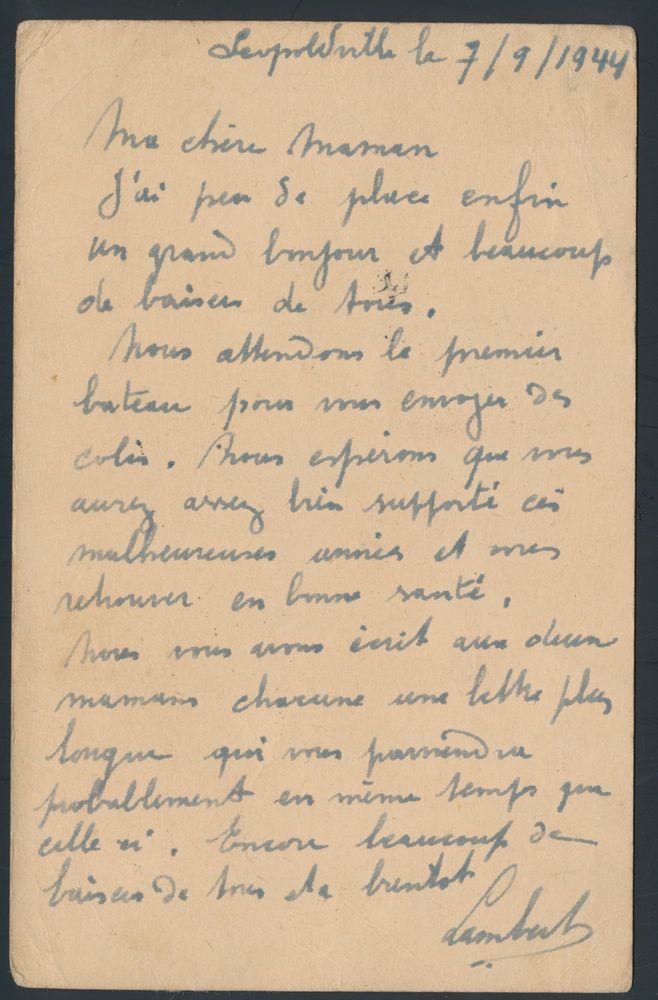 Leopoldville le 7/9/1944
Ma chère Maman
J'ai peu de place enfin
un grand bonjour et beaucoup
de baisers de tous.
Nous attendons le premier
bateau pour vous envoyer des
colis. Nous espérons que vous
aurez assez bien supporté ces
malheureuses années et vous
retrouver en bonne santé.
Nous vous avons écrit aux deux
mamans chacune une lettre plus
longue qui vous parviendra
probablement en même temps que
celle ci. Encore beaucoup de
baisers de tous et a bientot
Lambert